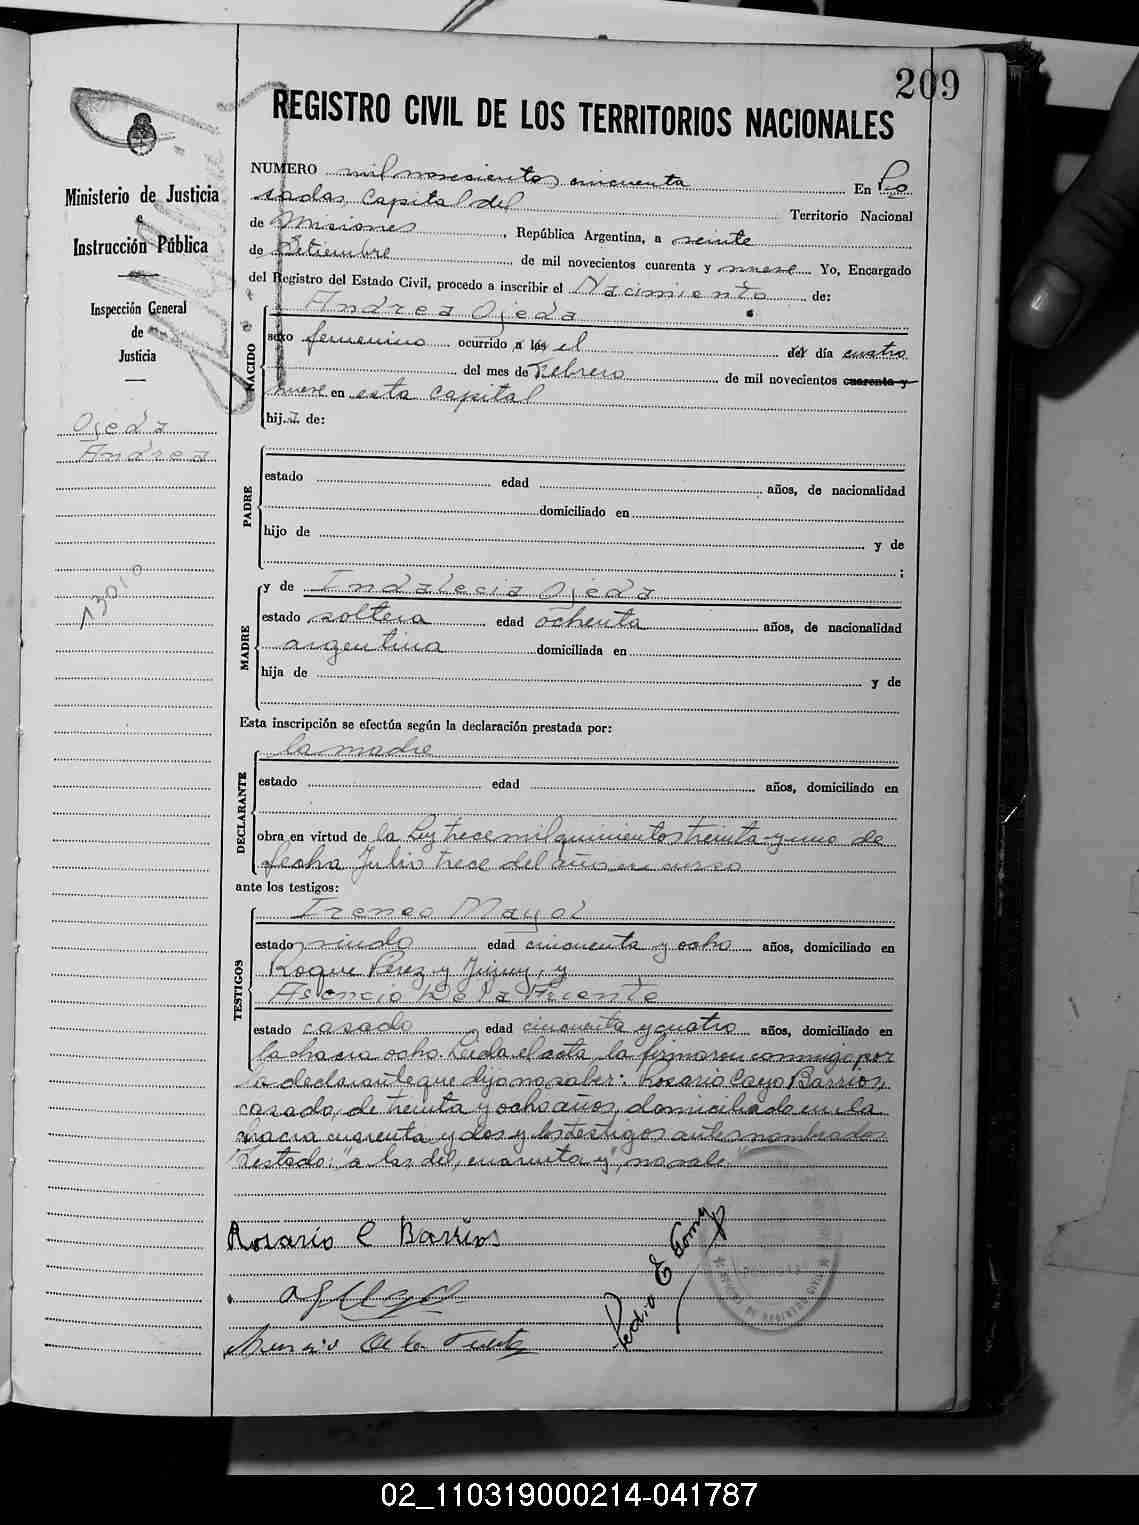 209
REGISTRO CIVIL DE LOS TERRITORIOS NACIONALES
Ministerio de Justicia
e
Instrucción Pública
Inspección General
de
Justicia
Ojeda
Andrea
13010
NUMERO mil novecientos cincuenta En Po
sadas, Capital del Territorio Nacional
de Misiones, República Argentina, a veinte
de Setiembre de mil novecientos cuarenta y nueve Yo, Encargado
del Registro del Estado Civil, procedo a inscribir el Nacimiento de:
NACIDO
Andrea Ojeda
sexo femenino ocurrido a las el del día cuatro
del mes de Febrero de mil novecientos cuarenta y
nueve en esta capital
hij a de:
PADRE
estado edad años, de nacionalidad
domiciliado en
hijo de y de
;
MADRE
y de Indalecia Ojeda
estado soltera edad ochenta años, de nacionalidad
argentina domiciliada en
hija de y de
Esta inscripción se efectúa según la declaración prestada por:
DECLARANTE
la madre
estado edad años, domiciliado en
obra en virtud de la Ley trece mil quinientos treinta y uno de
fecha Julio trece del año en curso
ante los testigos:
TESTIGOS
Ireneo Mayol
estado viudo edad cincuenta y ocho años, domiciliado en
Roque Pérez y Jujuy, y
Asencio De la Fuente
estado casado edad cincuenta y cuatro años, domiciliado en
la chacra ocho. Leida el acta, la firmaron conmigo por
la declarante que dijo no saber: Rosario Cayo Barrios,
casado, de treinta y ocho años, domiciliado en la
chacra cuarenta y dos y los testigos antes nombrados
Testado: "a las del, cuarenta y", no vale.
Rosario C Barrios
Pedro E Gomez
De la Fuente
02_110319000214-041787